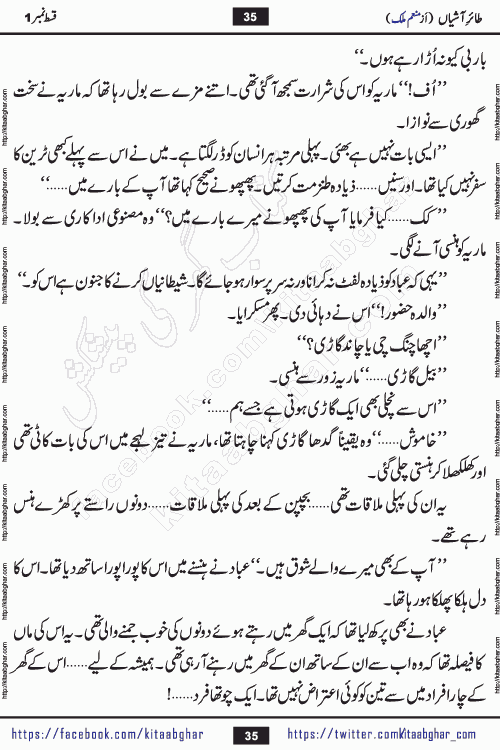 طائرِ آشیاں (از منعم ملک) 35 قسط نمبر 1
باربی کیو نہ اُڑا رہے ہوں۔‘‘
’’اُف!‘‘ ماریہ کو اس کی شرارت سمجھ آ گئی تھی۔ اتنے مزے سے بول رہا تھا کہ ماریہ نے سخت
گھوری سے نوازا۔
’’ایسی بات نہیں ہے بھئی۔ پہلی مرتبہ ہر انسان کو ڈر لگتا ہے۔ میں نے اس سے پہلے کبھی ٹرین کا
سفر نہیں کیا تھا۔ اور سنیں......زیادہ طنز مت کریں۔ پھپھو نے صحیح کہا تھا آپ کے بارے میں......‘‘
’’کک......کیا فرمایا آپ کی پھپھو نے میرے بارے میں؟‘‘ وہ مصنوعی اداکاری سے بولا۔
ماریہ کو ہنسی آنے لگی۔
’’یہی کہ عباد کو زیادہ لفٹ نہ کرانا ورنہ سر پر سوار ہو جائے گا۔ شیطانیاں کرنے کا جنون ہے اس کو۔‘‘
’’والدہ حضور!‘‘ اس نے دہائی دی۔ پھر مسکرایا۔
’’اچھا چنگ چی یا چاند گاڑی؟‘‘
’’بیل گاڑی......‘‘ ماریہ زور سے ہنسی۔
’’اس سے نچلی بھی ایک گاڑی ہوتی ہے جسے ہم......‘‘
’’خاموش......‘‘ وہ یقیناً گدھا گاڑی کہنا چاہتا تھا، ماریہ نے تیز لہجے میں اس کی بات کاٹی تھی
اور کھلکھلا کر ہنستی چلی گئی۔
یہ ان کی پہلی ملاقات تھی......بچپن کے بعد کی پہلی ملاقات......دونوں راستے پر کھڑے ہنس
رہے تھے۔
’’آپ کے بھی میرے والے شوق ہیں۔‘‘ عباد نے ہنسنے میں اس کا پورا پورا ساتھ دیا تھا۔ اس کا
دل ہلکا پھلکا ہو رہا تھا۔
عباد نے بھی پرکھ لیا تھا کہ ایک گھر میں رہتے ہوئے دونوں کی خوب جمنے والی تھی۔ یہ اس کی ماں
کا فیصلہ تھا کہ وہ اب سے ان کے ساتھ ان کے گھر میں رہنے آ رہی تھی۔ ہمیشہ کے لیے......اس کے گھر
کے چار افراد میں سے تین کو کوئی اعتراض نہیں تھا۔ ایک چوتھا فرد......!
https://facebook.com/kitaabghar 35 https://twitter.com/kitaabghar_com
http://kitaabghar.com
کتاب گھر کی پیشکش
kitaabghar.com
facebook.com/kitaabghar